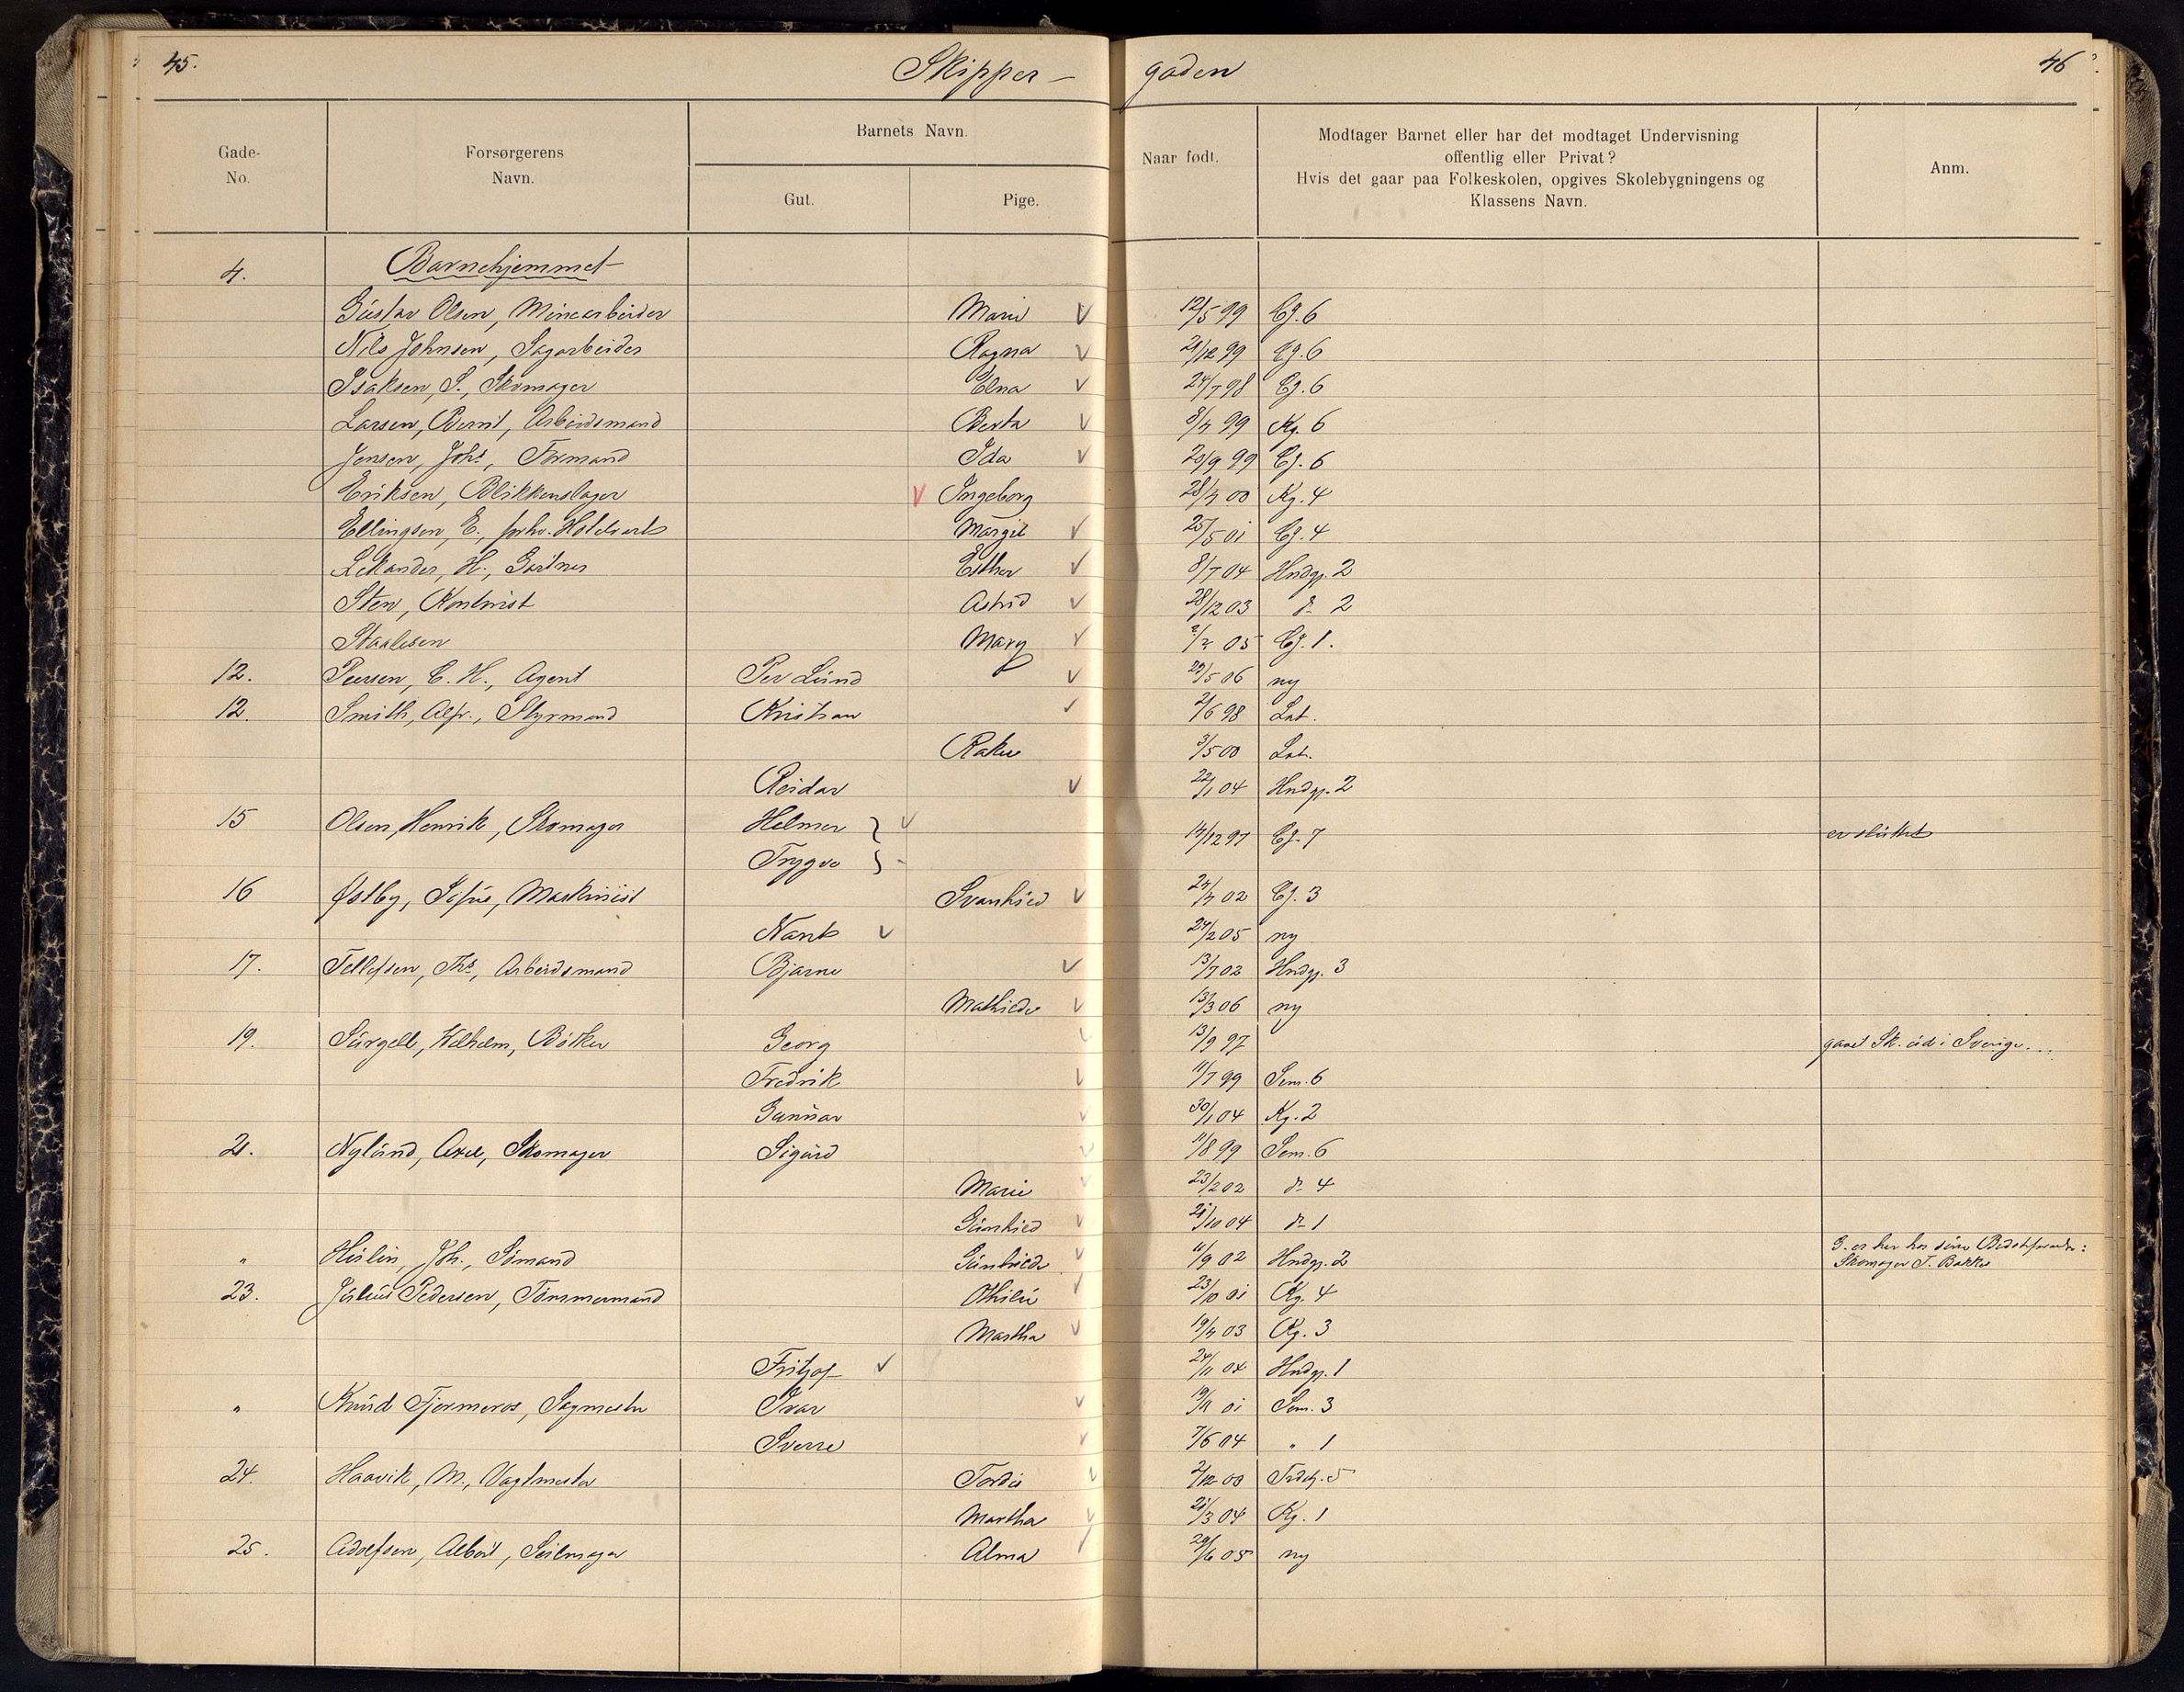 45.
Skipper-
gaden
46
Gade-
No.
Forsørgerens
Navn.
Barnets Navn.
Gut.
Pige.
Naar født.
Modtager Barnet eller har det modtaget Undervisning
offentlig eller Privat?
Hvis det gaar paa Folkeskolen, opgives Skolebygningens og
Klassens Navn.
Anm.
4. Barnehjemmet
Gustav Olsen, Minearbeider Marie 12/5 99 Cg. 6
Nils Johnsen, Sagarbeider Ragna 21/12 99 Cg. 6
Isaksen, S., Skomager Elna 24/7 98 Cg. 6
Larsen, Bernt, Arbeidsmand Berta 8/4 99 Kg. 6
Jensen, Johs, Formand Ida 20/9 99 Cg. 6
Eriksen, Blikkenslager Ingeborg 28/4 00 Kg. 4
Ellingsen, E., forhv. Hotelvært Margit 25/5 01 Cg. 4
Lekander, H., Gartner Esther 8/7 04 Hndgj. 2
Sten, Astrid 28/12 03 do 2
Staalesen Mary 05 Cg. 1.
12. Peersen, C. H., Agent Per Lund 29/5 06 ny
12. Smith, Alfr., Styrmand Kristian 2/6 98 Lat.
Rakel 3/5 00 Lat.
Reidar 22/1 04 Hndgj. 2
15 Olsen, Henrik, Skomager Helmer } 14/12 97 Cg. 7 er sluttet
Trygve }
16 Østby, Sofus, Maskinist Svanhild 24/4 02 Cg. 3
24/2 05 ny
17. Tellefsen, Ths, Arbeidsmand Bjarne 13/7 02 Hndgj. 3
Mathilde 13/3 06 ny
19. Wilhelm, Bøtker Georg 13/9 97 gaaet Sk. ud i Sverige.
Fredrik 11/7 99 Sem. 6
Gunnar 30/1 04 Kg. 2
21. Nylund, Axel, Skomager Sigurd 11/8 99 Sem. 6
Marie 23/2 02 do 4
Gunhild 21/10 04 do 1
" Joh., Sømand Gunhilde 11/9 02 Hndgj. 2 G. er her hos sine Bedsteforældre:
Skomager T. Bakke
23. Julius Pedersen, Tømmermand Othilie 23/10 01 Kg. 4
Martha 19/4 03 Kg. 3
Fritjof 24/11 04 Hndgj. 1
" Knud Tjermeros, Sagmester Ivar 19/11 01 Sem. 3
Sverre 7/6 04 " 1
24. Haavik, M., Vagtmester Tordis 2/12 00 5
Martha 21/3 04 Kg. 1
25. Adolfsen, Albert, Seilmager Alma 29/6 05 ny